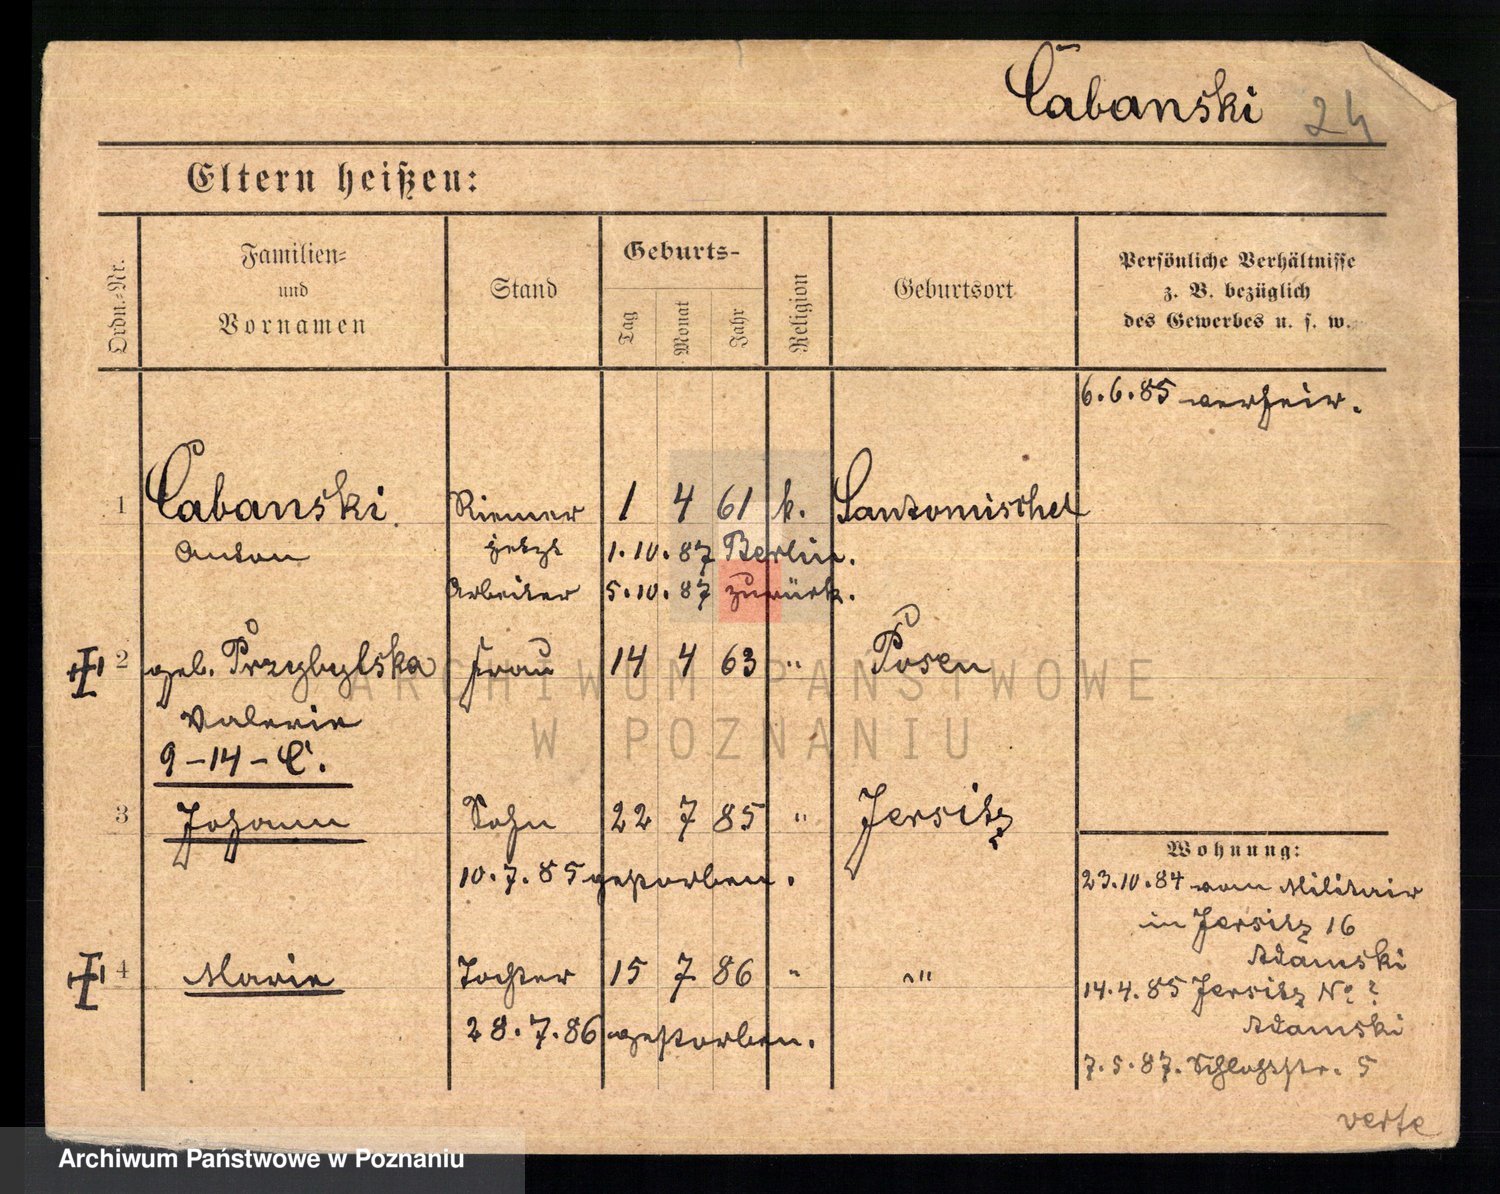 Cabanski 24
Eltern heißen:
Ordn.-Nr.
Familien-
und
Vornamen
Stand
Geburts-
Tag
Monat
Jahr
Religion
Geburtsort
Persönliche Verhältnisse
z. B. bezüglich
des Gewerbes u. s. w.
6.6.85 verheir.
1 Cabanski Riemer 1 4 61 k. Santomischel
Anton jetzt 1.10.87 Berlin.
Arbeiter 5.10.87 zurück.
2 geb. Przybylska Frau 14 4 63 " Posen
Valerie
9-14-C.
3 Johann Sohn 22 7 85 " Jersitz
10.7.85 gestorben.
4 Marie Tochter 15 7 86 " "
28.7.86 gestorben.
Wohnung:
23.10.84 vom Militair
in Jersitz 16
Adamski
14.4.85 Jersitz No ?
Adamski
7.5.87. Schloßstr. 5
verte
ARCHIWUM PAŃSTWOWE
W POZNANIU
Archiwum Państwowe w Poznaniu